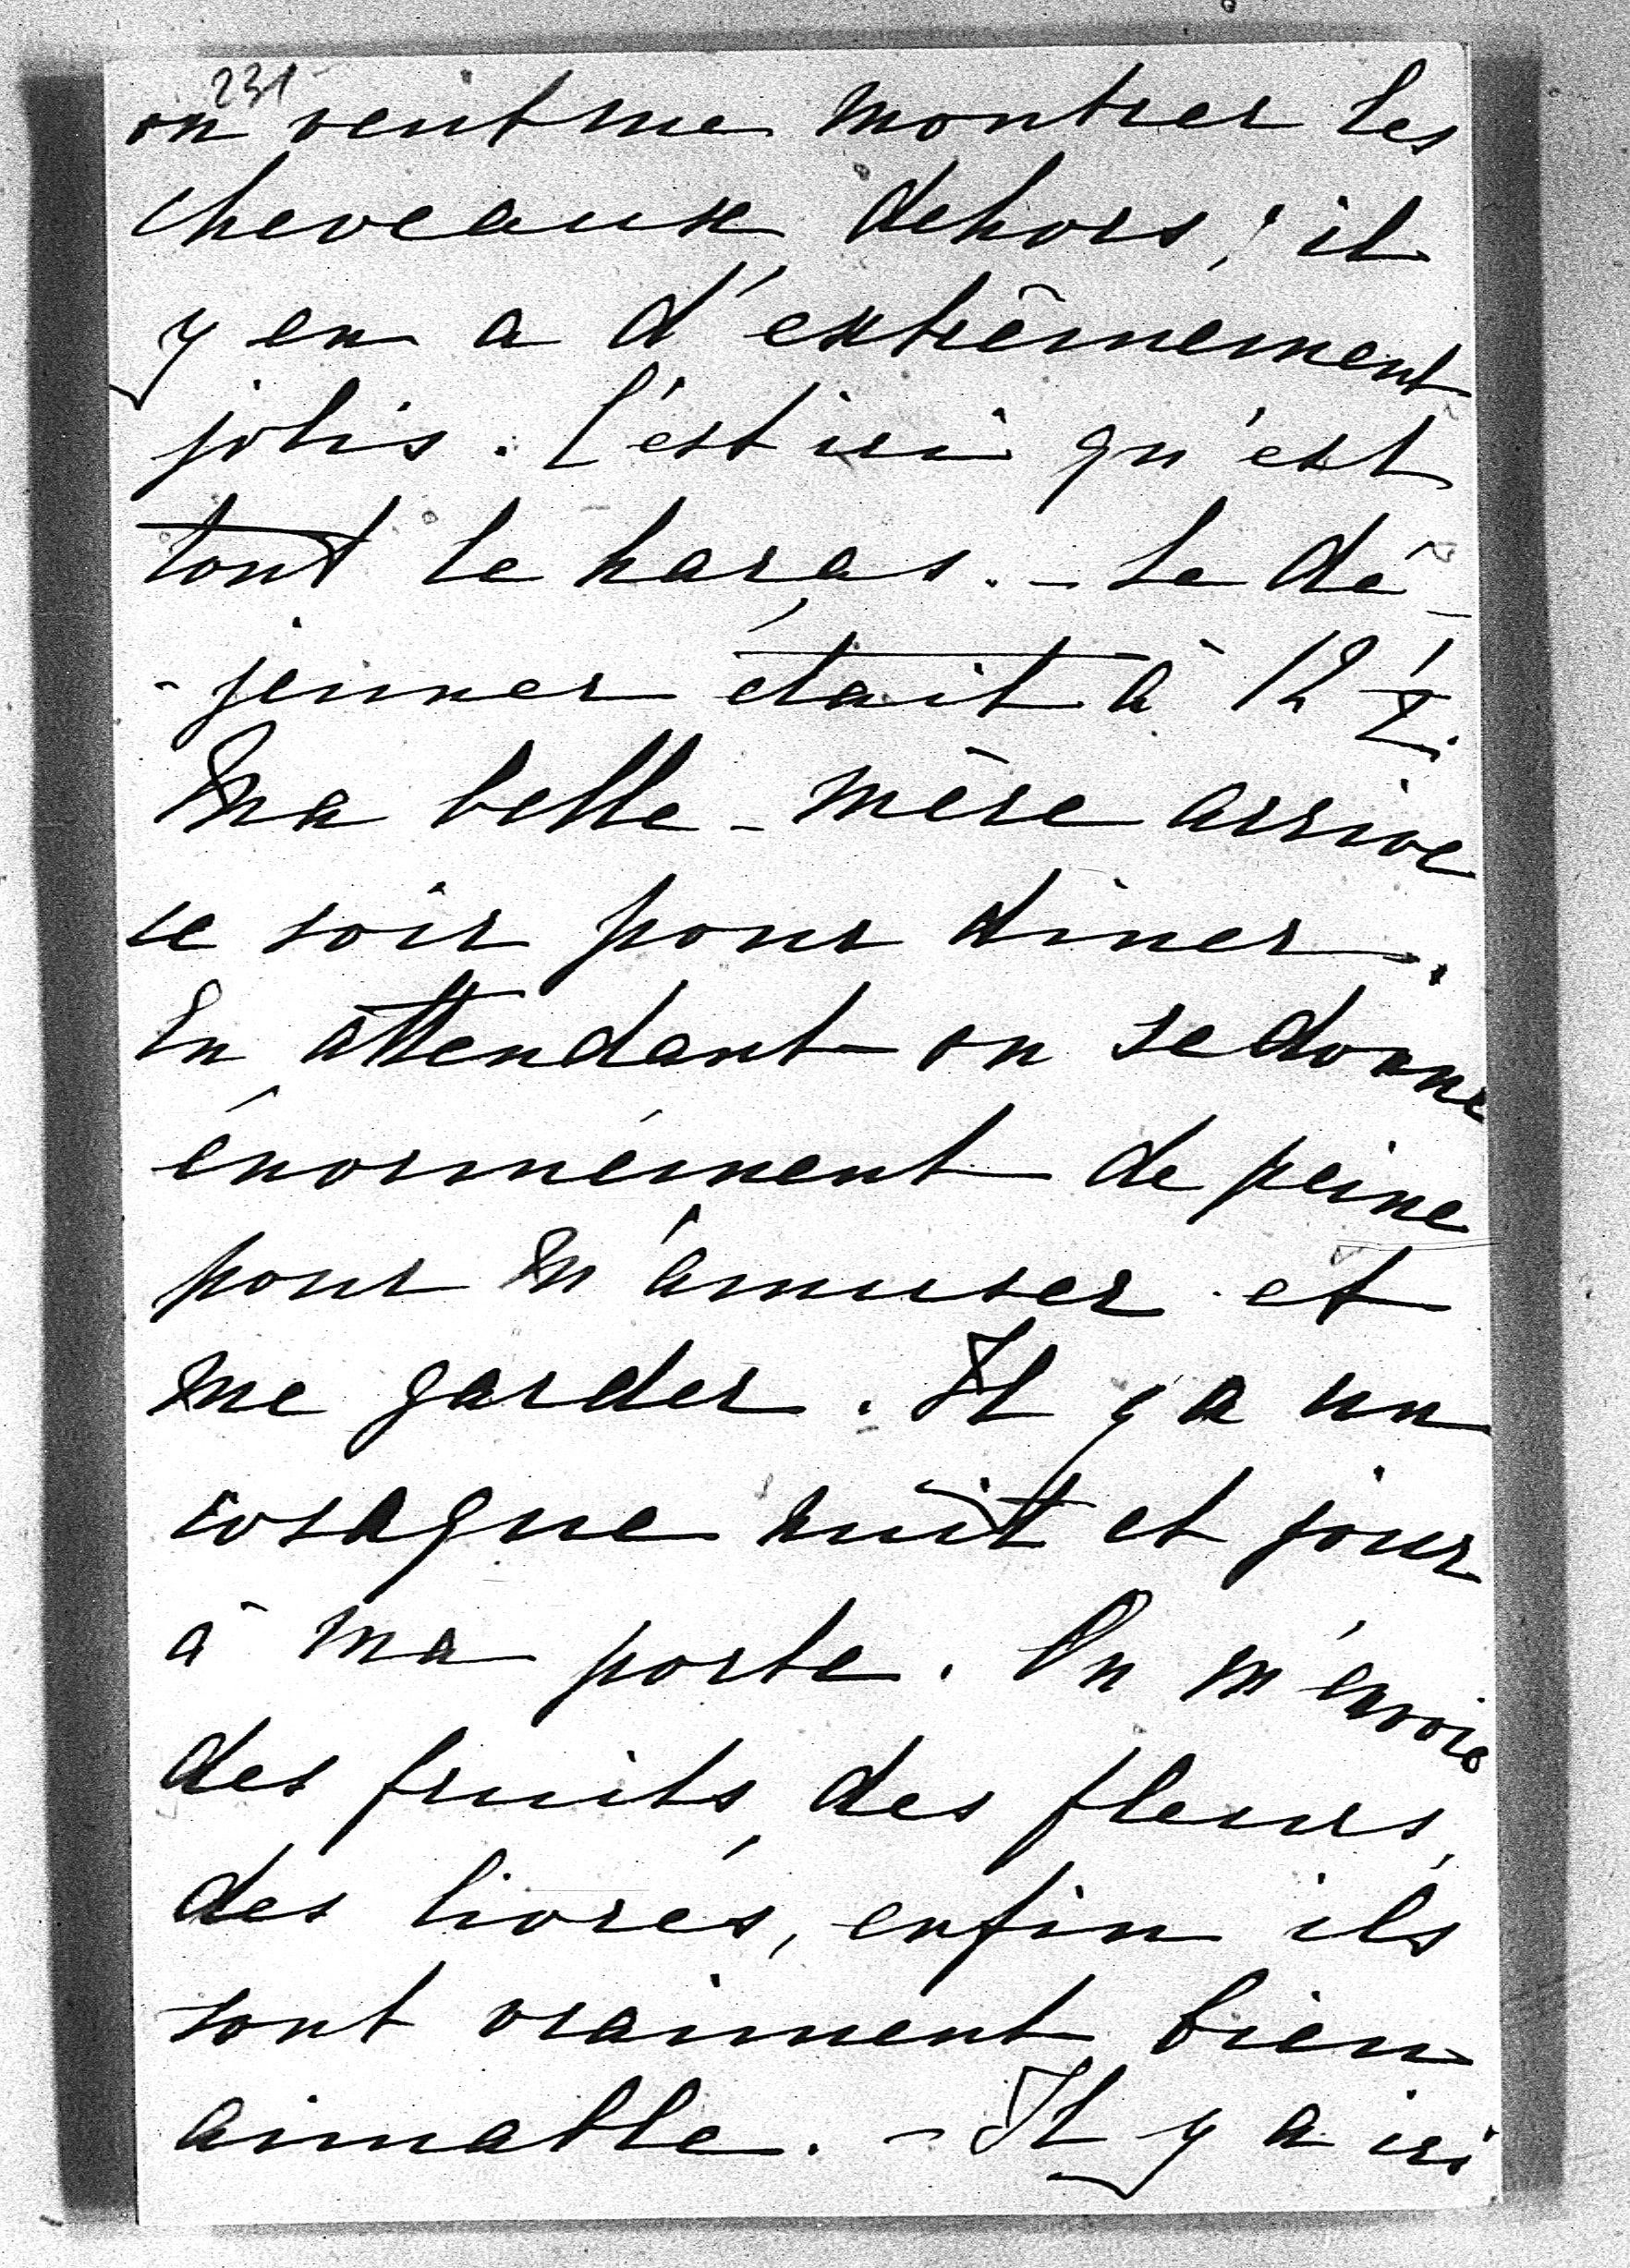 231
on veut me montrer les
cheveaux dehors; il
y en a d'extrêmement
jolis. C'est ici qu'est
tout le haras. - Le dé-
-jeuner était à 12 1/2.
Ma belle-mère arrive
ce soir pour diner.
En attendant on se donne
énormément de peine
pour m'amuser et
me garder. Il y a un
cosaque nuit et jour
à ma porte. On m'envoie
des fruits, des fleurs,
des livres, enfin ils
sont vraiment bien
aimable. - Il y a ici